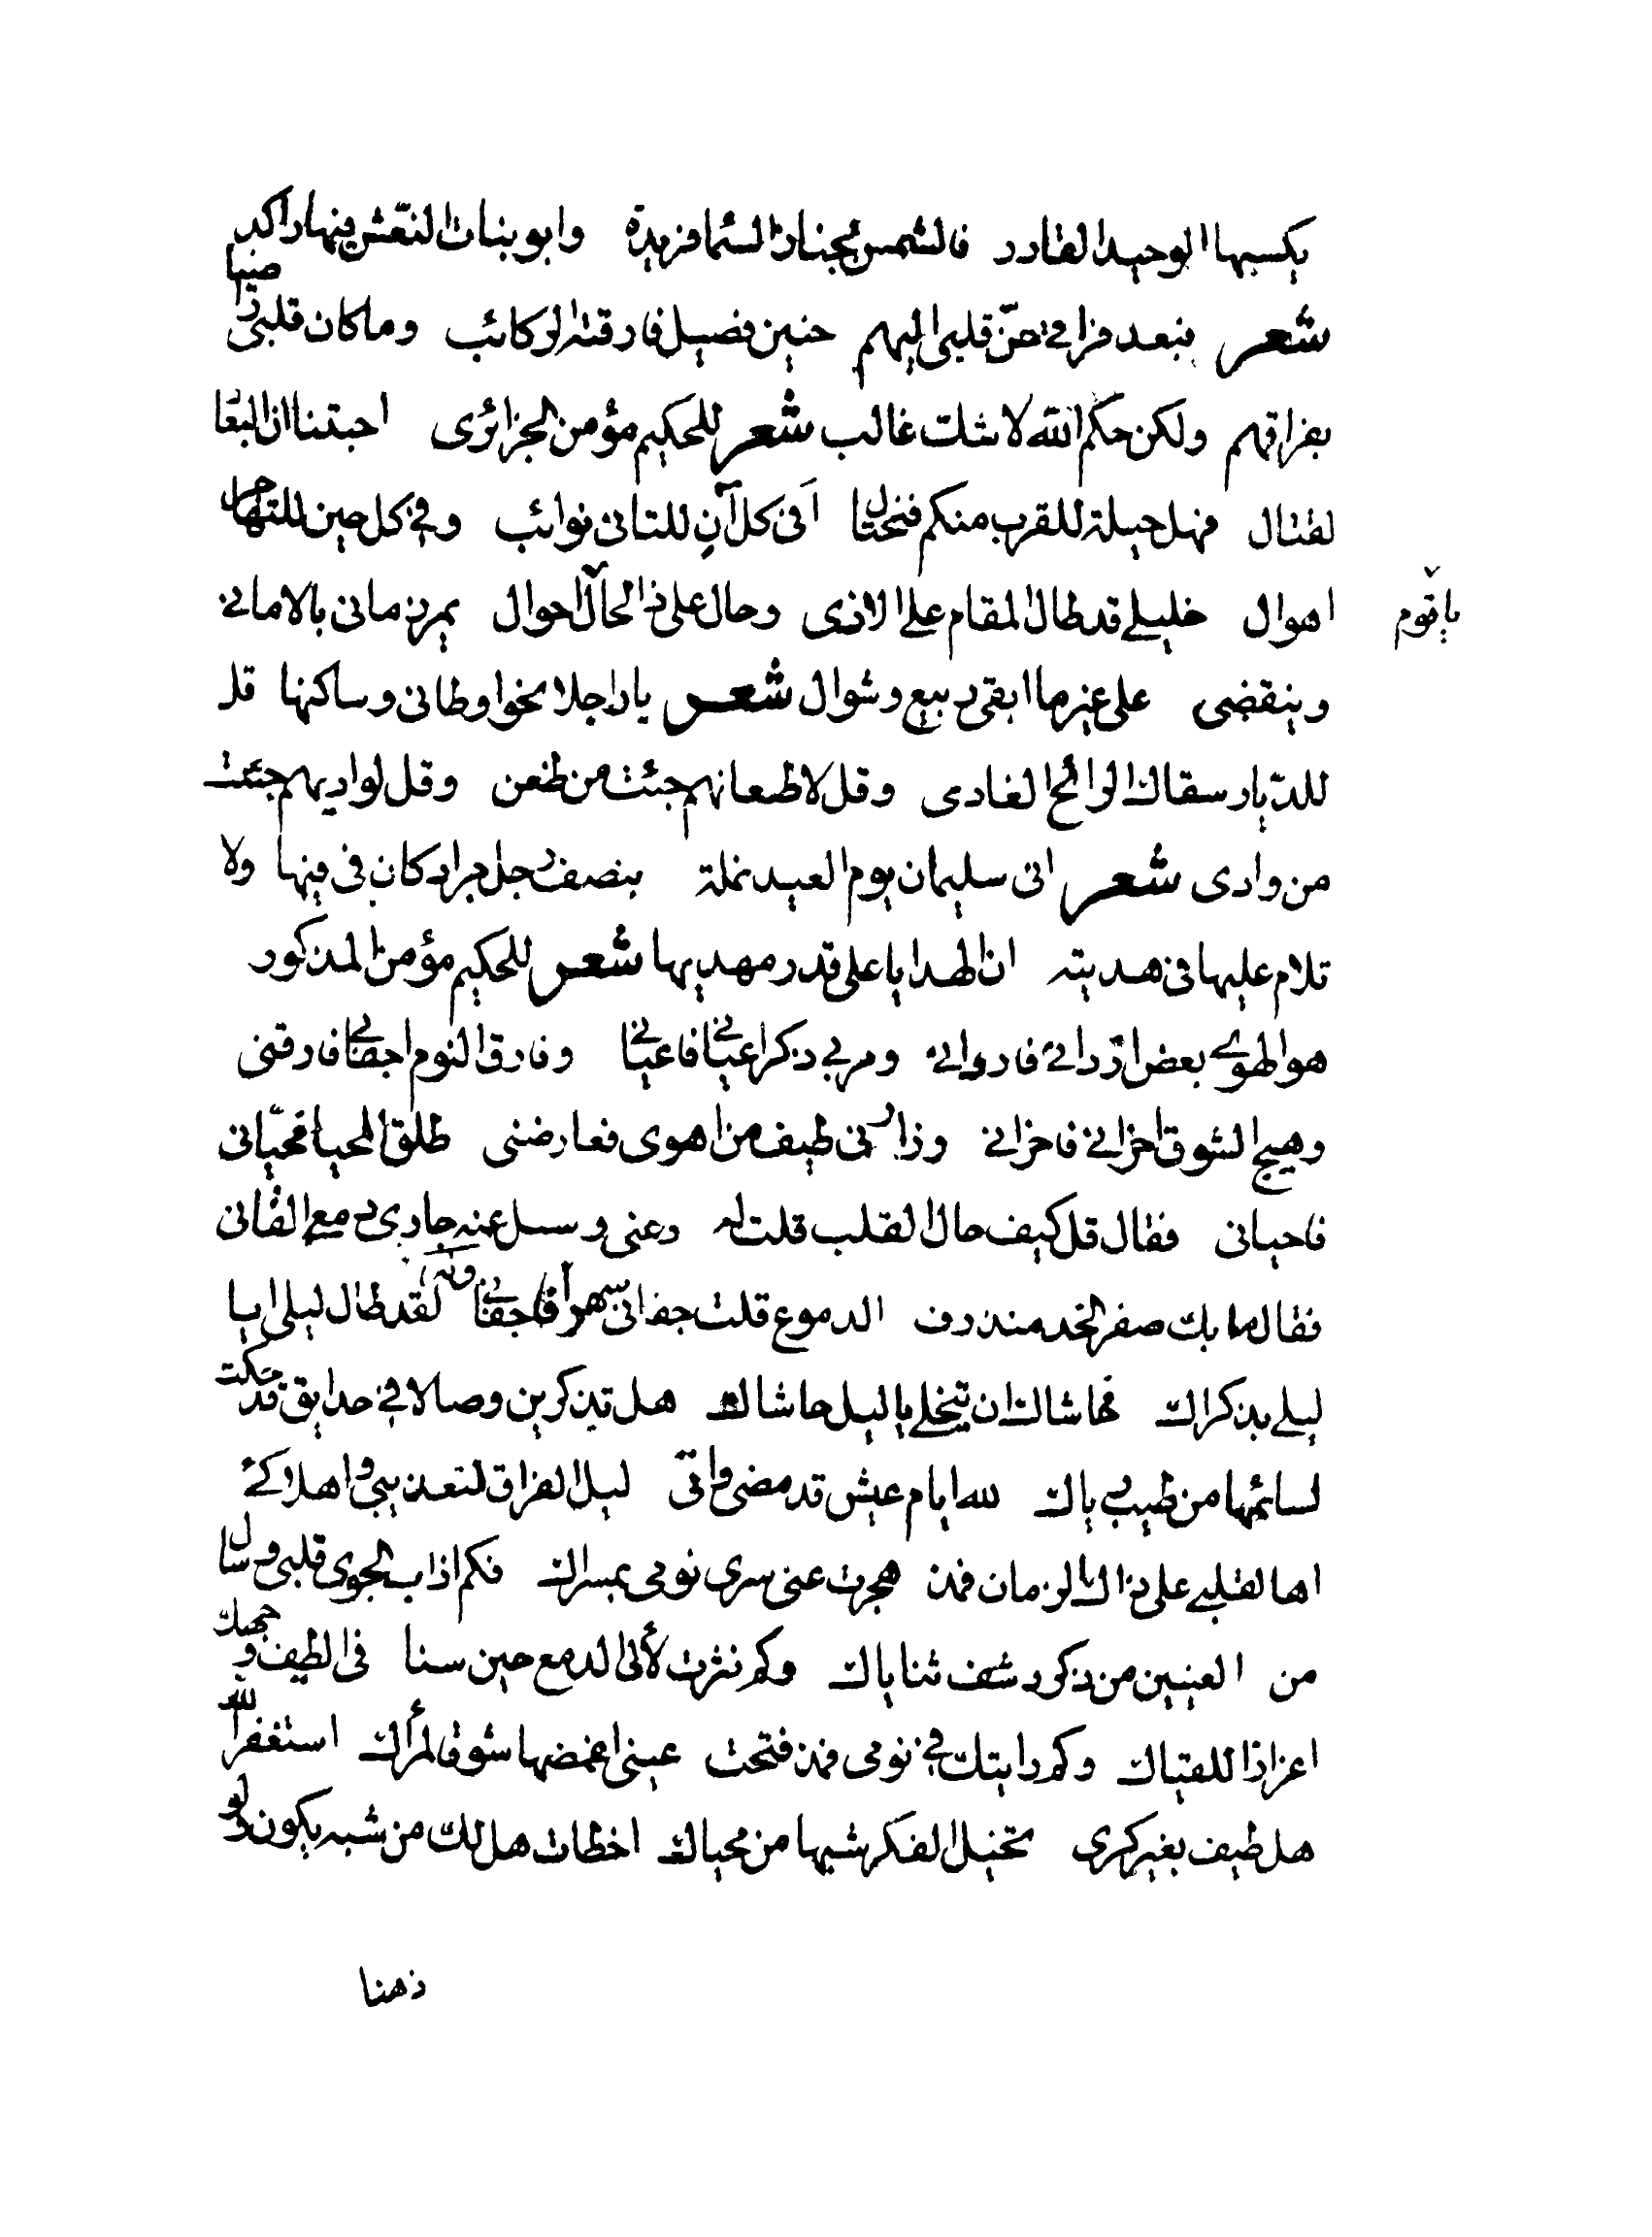 يكسبها الوحيد الفارد فالشمس تجتاز السما فريدة وابو بنات النعش فيها راكد
شعر فبعد فراقي حنّ قلبي اليهم حنين فصيل فارقته الركائب وما كان قلبي راضيا
بفراقهم ولكن حكم الله لا شك غالب شعر للحكيم مؤمن الجزائرى احبتنا ان البقا
لقتال فهل حيلة للقرب منكم فنحتال أفى كل آنٍ للتنائى نوائب وفي كل حين للتهاجر
اهوال خليلي قد طال المقام على الاذى وحال على ذا الحال يا قوم احوال يمر زمانى بالاماني
وينقضى على غير ما ابقى ربيع وشوال شعر يا راجلا نحو اوطانى وساكنها قل
للديار سقاك الرائح الغادى وقل لاظعانهم جئت من ظعن وقل لواديهم جئت
من وادى شعر اتى سليمان يوم العيد نملة بنصف رجل جراد كان فى فيها ولا
تلام عليها فى هديته ان الهدايا على قدر مهديها شعر للحكيم مؤمن المذكور
هو الهوى بعض ارداني فارواني ومر بي ذكر اعياني فاعياني وفارق النوم اجفاني فارقنى
وهيج الشوق احزاني فاحزاني وزارنى طيف من اهوى فعارضنى طلق المحيا فحيّانى
فاحيانى فقال قل كيف حال القلب قلت له دعنى وسل عنه جارى دمع القانى
فقال ما بك صفر الخد منذرف الدموع قلت جفانى سهرا فاجفاني وله لقد طال ليلى ايا
ليلى بذكراك فحاشاك ان تبخلى يا ليل حاشاك هل تذكرين وصالا في حدايق قد حكت
لسائمها من طيب رياك لله ايام عيش قد مضى واتى ليل الفراق لتعذيبى واهلاكي
اها لقلبي على ذاك الزمان فمذ هجرت عنى سرى نومى بمسراك فكم اذاب الجوى قلبى وسال
من العينين من ذكر رشف ثناياك وكم نثرت لألى الدمع حين سنا فى الطيف وجهك
اعزازا للقياك وكم رايتك في نومى فمذ فتحت عينى اغمضها شوقا لمرأك استغفر الله
هل طيف بغير كرى تخيل الفكر شبها من محياك اخطات هل لك من شبه يكون ولو
ذهنا